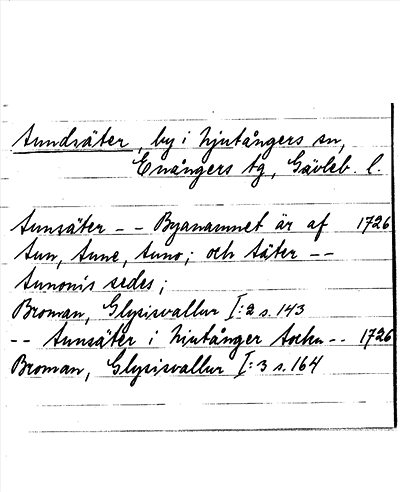 Sundsäter, by i Njutångers sn,
Enångers tg, Gävleb. l.
Sunsäter -- Byanamnet är af 1726
Sun, Sune, Suno; och säter --
Sunonis sedes;
Broman, Glysisvallur I:2 s. 143
-- Sunsäter i Njutånger Sockn -- 1726
Broman, Glysisvallur I:3 s. 164